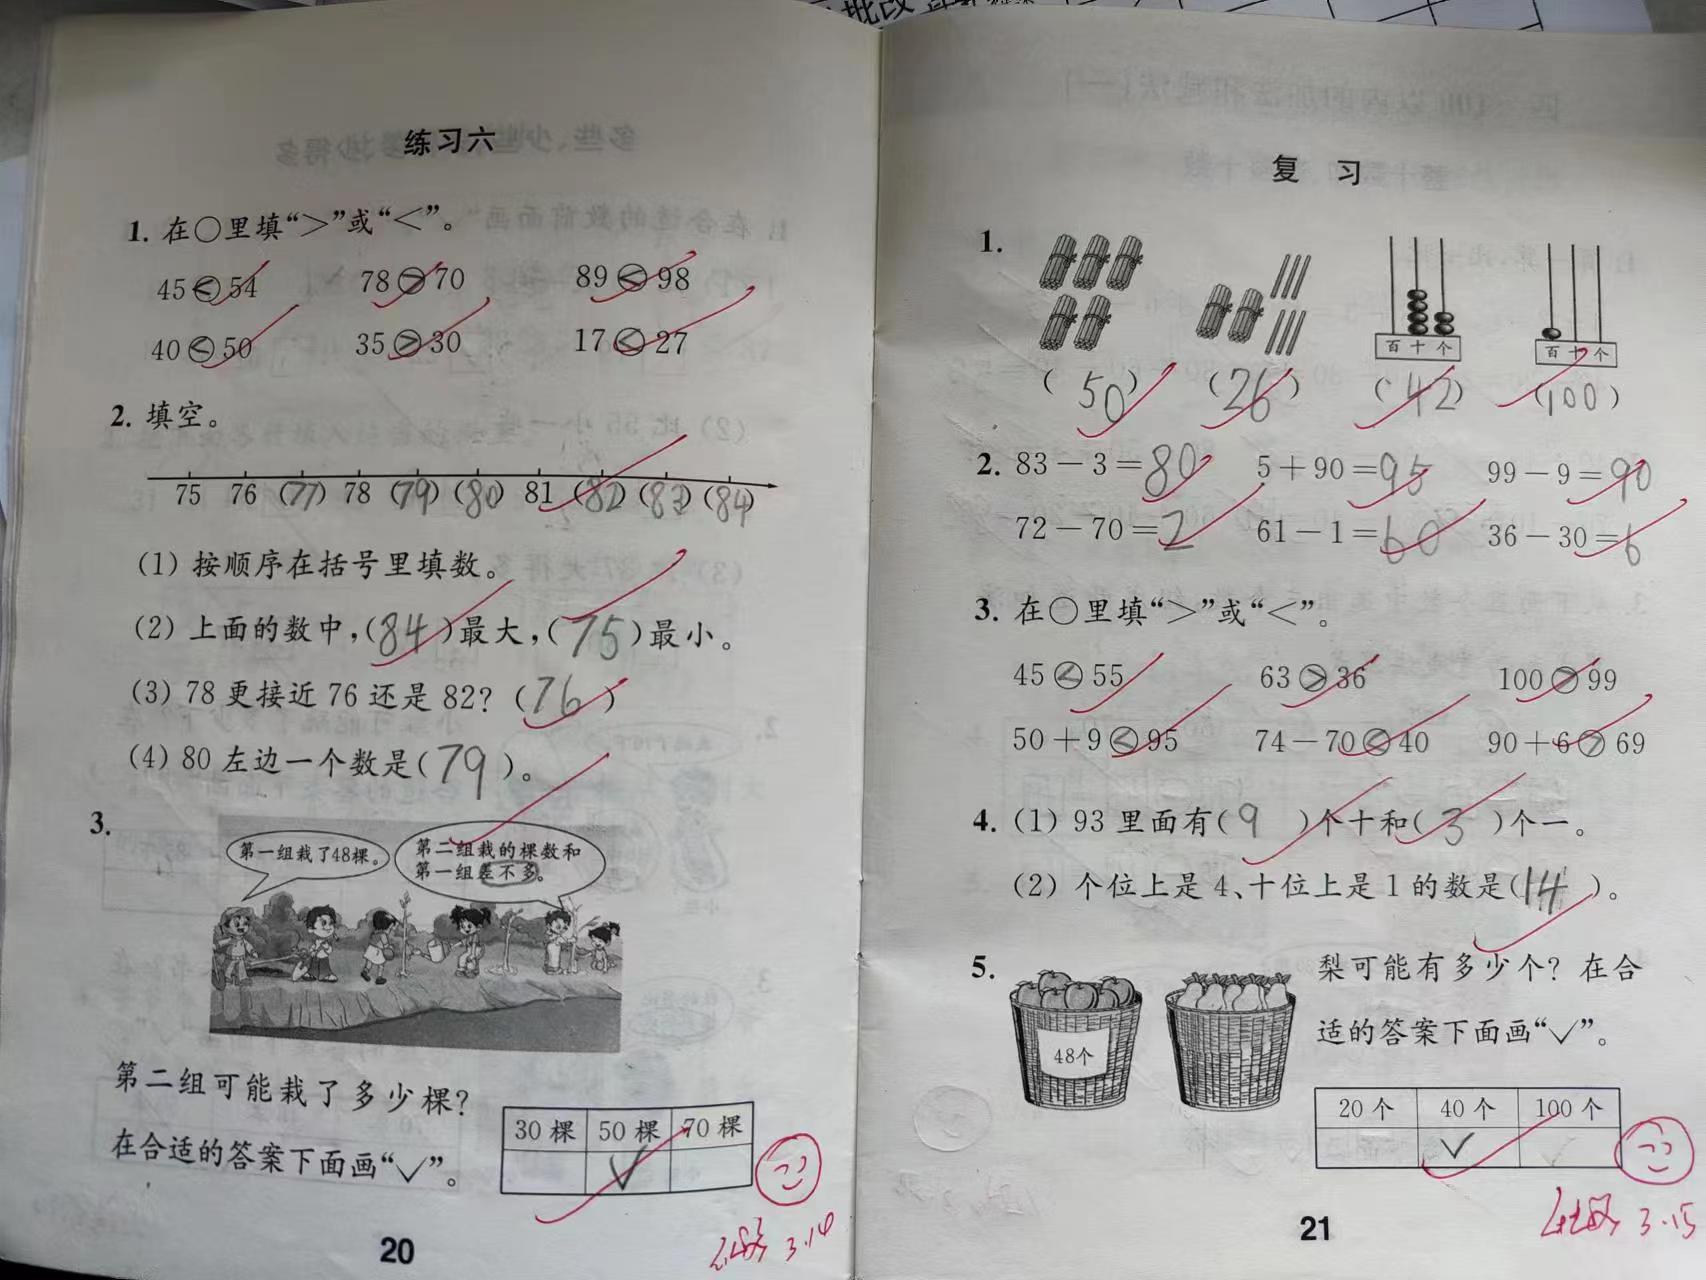 批改
练习六
1. 在○里填“＞”或“＜”。
45<54 78>70 89<98
40<50 35>30 17<27
2. 填空。
75 76 (77) 78 (79) (80) 81 (82) (83) (84)
(1) 按顺序在括号里填数。
(2) 上面的数中,(84)最大,(75)最小。
(3) 78 更接近 76 还是 82? (76)
(4) 80 左边一个数是(79)。
3.
第一组栽了48棵。
第二组栽的棵数和
第一组差不多。
第二组可能栽了多少棵?
在合适的答案下面画“√”。
30 棵 50 棵 70 棵
√
3.14
20
复 习
1.
百 十 个 百 十 个
(50) (26) (42) (100)
2. 83－3＝80 5＋90＝95 99－9＝90
72－70＝2 61－1＝60 36－30＝6
3. 在○里填“＞”或“＜”。
45<55 63>36 100>99
50＋9<95 74－70<40 90＋6>69
4. (1) 93 里面有(9)个十和(3)个一。
(2) 个位上是 4、十位上是 1 的数是(14)。
5.
48个
梨可能有多少个? 在合
适的答案下面画“√”。
20 个 40 个 100 个
√
3.15
21